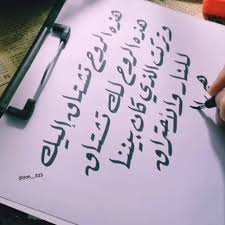 هذه الروح تشتاق إليك
هذه الروح لك تشتاق
وتركت الذي كان بيننا
للنار والافتراق